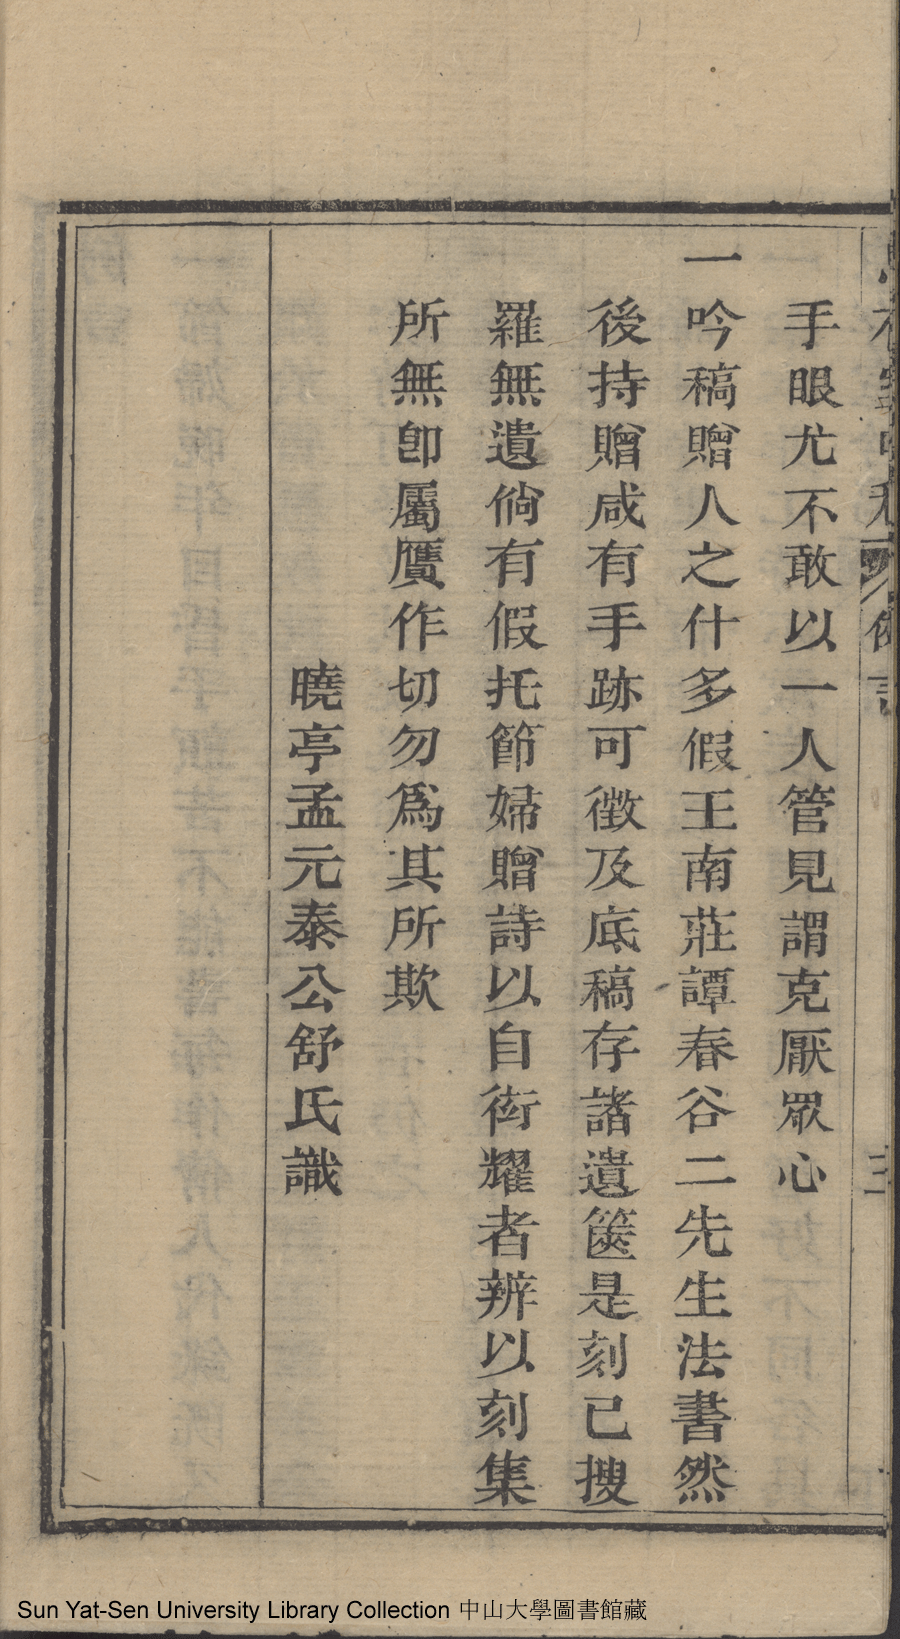 手眼尤不敢以一人管見謂克厭眾心
一吟稿贈人之什多假王南莊譚春谷二先生法書然
後持贈咸有手跡可徵及底稿存諸遺篋是刻已搜
羅無遺倘有假托節婦贈詩以自衒耀者辨以刻集
所無卽屬贋作切勿爲其所欺
曉亭孟元泰公舒氏識
Sun Yat-Sen University Library Collection 中山大學圖書館藏